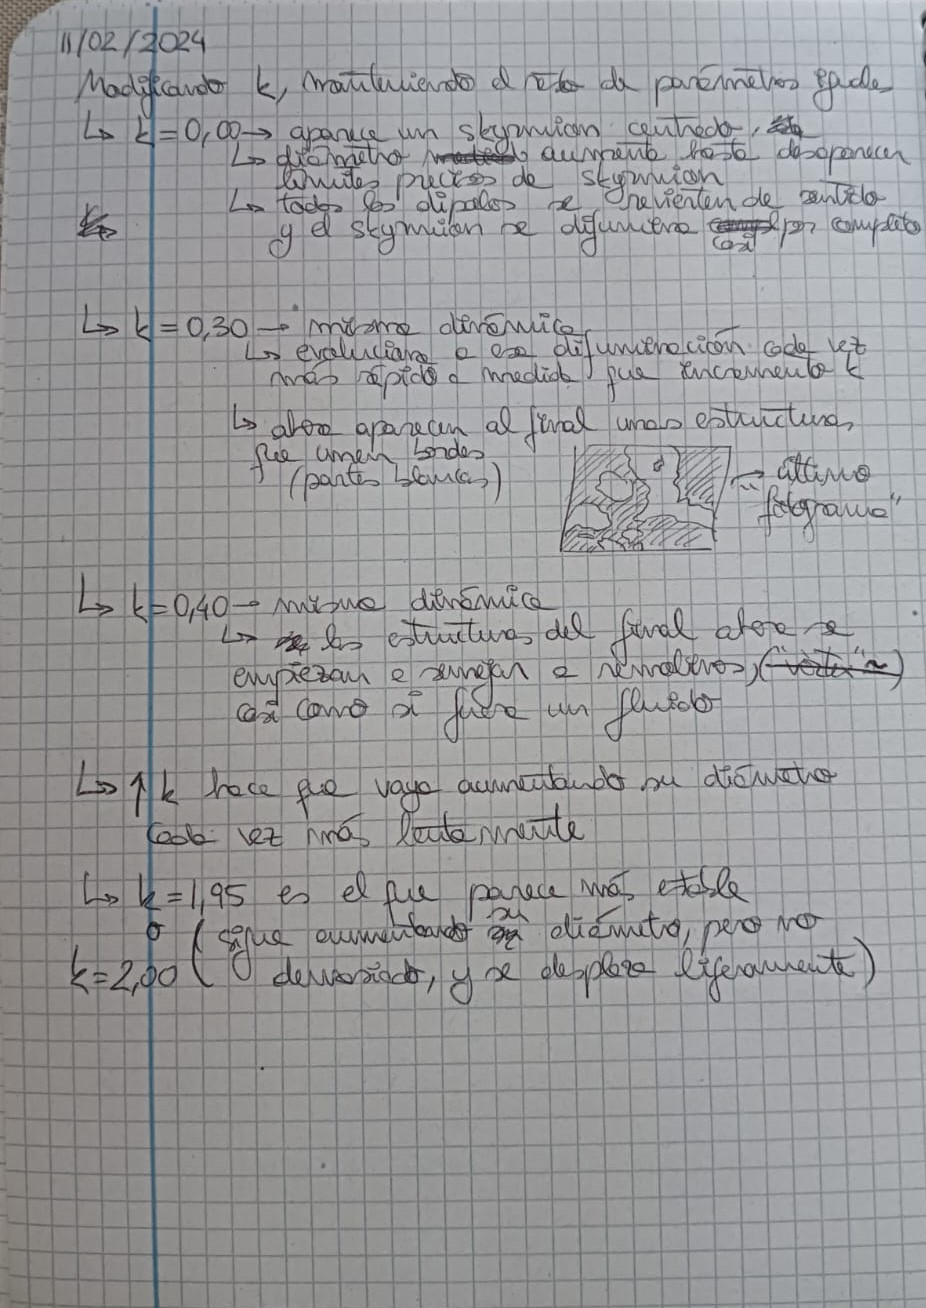 11/02/2024
Modificando k, manteniendo el resto de parámetros iguales
↳ k=0,00→ aparece un skyrmion centrado,
↳ diámetro aumenta hasta desaparecer
límites precisos de skyrmion
↳ todos los dipolos se revierten de sentido
y el skyrmion se difumina casi por completo
↳ k=0,30→ misma dinámica
↳ evoluciona a esa difuminación cada vez
más rápido a medida que incremento k
↳ ahora aparecen al final unas estructuras
que unen bordes
(partes blancas)
→ "último
fotograma"
↳ k=0,40→ misma dinámica
↳ las estructuras del final ahora se
empiezan a semejar a remolinos,
casi como si fuera un fluido
↳ ↑k hace que vaya aumentando su diámetro
cada vez más lentamente
↳ k=1,95 es el que parece más estable
o (sigue aumentando su diámetro, pero no
k=2,00 demasiado, y se desplaza ligeramente)